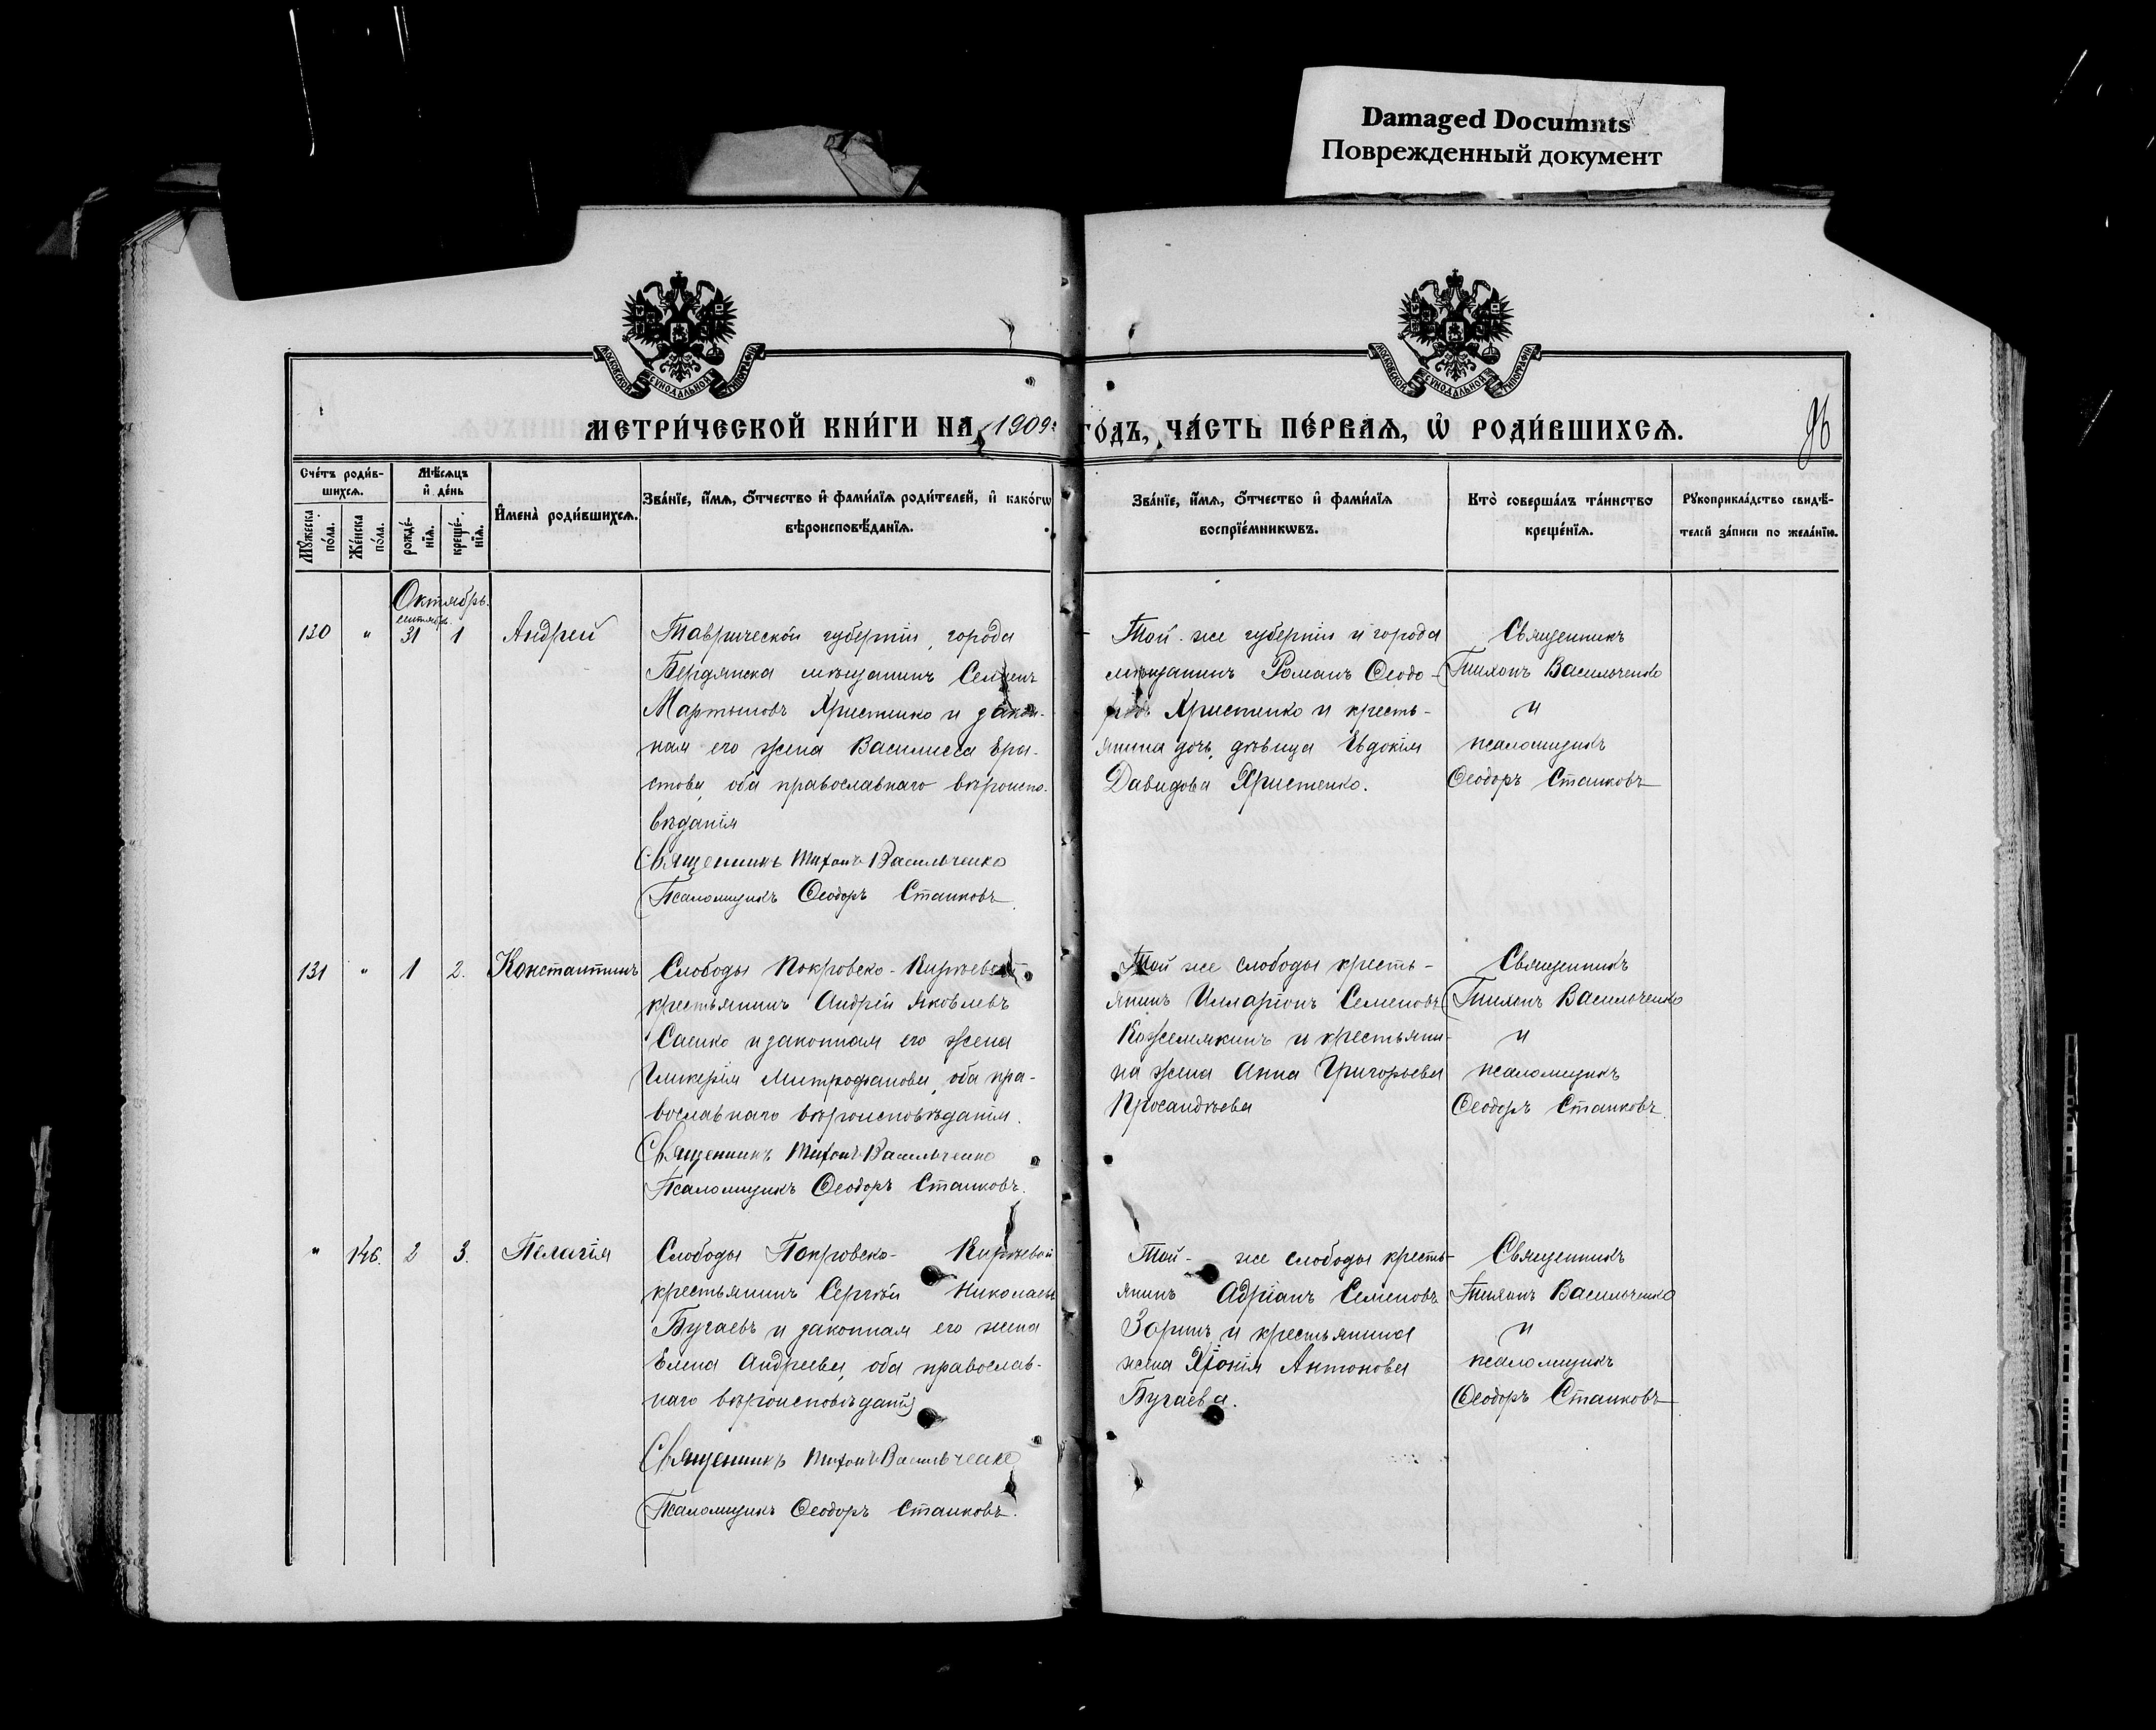 Damaged Documnts
Поврежденный документ
МОСКОВСКОЙ СѴНОДАЛЬНОЙ ТИПОГРАФІИ
МОСКОВСКОЙ СѴНОДАЛЬНОЙ ТИПОГРАФІИ
МЕТРИ́ЧЕСКОЙ КНИ́ГИ НА 1909 г
ГО́ДЪ, ЧА́СТЬ ПЕ́РВАѦ, Ѡ РОДИ́ВШИХСѦ.
96
Сче́тъ роди́в-
шихсѧ.
Мѣ́сѧцъ
и҆ де́нь
Мꙋ́жеска по́ла.
Же́нска по́ла.
рожде́-нїѧ.
креще́-нїѧ.
И҆мена̀ роди́вшихсѧ.
Зва́нїе, и҆́мѧ, ѻ҆́тчество и҆ фами́лїѧ роди́телей, и҆ како́гѡ
вѣроисповѣ́данїѧ.
Зва́нїе, и҆́мѧ, ѻ҆́тчество и҆ фами́лїѧ
воспрїе́мникѡвъ.
Кто̀ соверша́лъ та́инство
креще́нїѧ.
Рꙋкоприкла́дство свидѣ́-
телей за́писи по жела́нїю.
Октябрь.
сентябрь.
130 " 31 1 Андрей
Таврической губерніи, города
Бердянска мѣщанинъ Семенъ
Мартыновъ Христенко и закон-
ная его жена Василисса Ера-
стова, оба православнаго вѣроиспо-
вѣданія
Священникъ Тихонъ Васильченко
Псаломщикъ Ѳеодоръ Станковъ.
Той-же губерніи и города
мѣщанинъ Романъ Ѳеодо-
ровъ Христенко и кресть-
янина дочь, дѣвица Евдокія
Давидова Христенко.
Священникъ
Тихонъ Васильченко
и
псаломщикъ
Ѳеодоръ Станковъ
131 " 1 2. Константинъ
Слободы Покровско-Кирѣевской
крестьянинъ Андрей Яковлевъ
Саенко и законная его жена
Гликерія Митрофанова, оба пра-
вославнаго вѣроисповѣданія.
Священникъ Тихонъ Васильченко
Псаломщикъ Ѳеодоръ Станковъ.
Той же слободы кресть-
янинъ Илларіонъ Семеновъ
Кожемякинъ и крестьяни-
на жена Анна Григорьева
Просандѣева
Священникъ
Тихонъ Васильченко
и
псаломщикъ
Ѳеодоръ Станковъ.
" 146. 2 3. Пелагія
Слободы Покровско-Кирѣевой
крестьянинъ Сергѣй Николаевъ
Бугаевъ и законная его жена
Елена Андреева, оба православ-
наго вѣроисповѣданія
Священникъ Тихонъ Васильченко
Псаломщикъ Ѳеодоръ Станковъ.
Той-же слободы кресть-
янинъ Адріанъ Семеновъ
Зоринъ и крестьянина
жена Хіонія Антонова
Бугаева.
Священникъ
Тихонъ Васильченко
и
псаломщикъ
Ѳеодоръ Станковъ